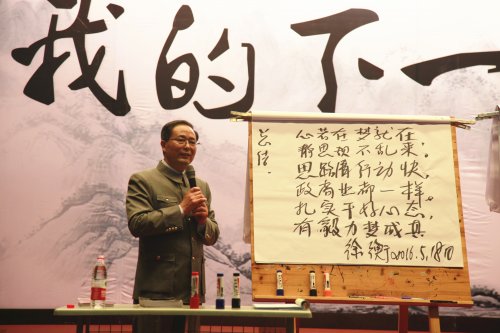 我的下一
总结:
心若在梦就在
静思想不乱来,
思路 行动快,
政商业都一样。
扎实干好心态,
有毅力梦成真
徐衡 2016.5.18日